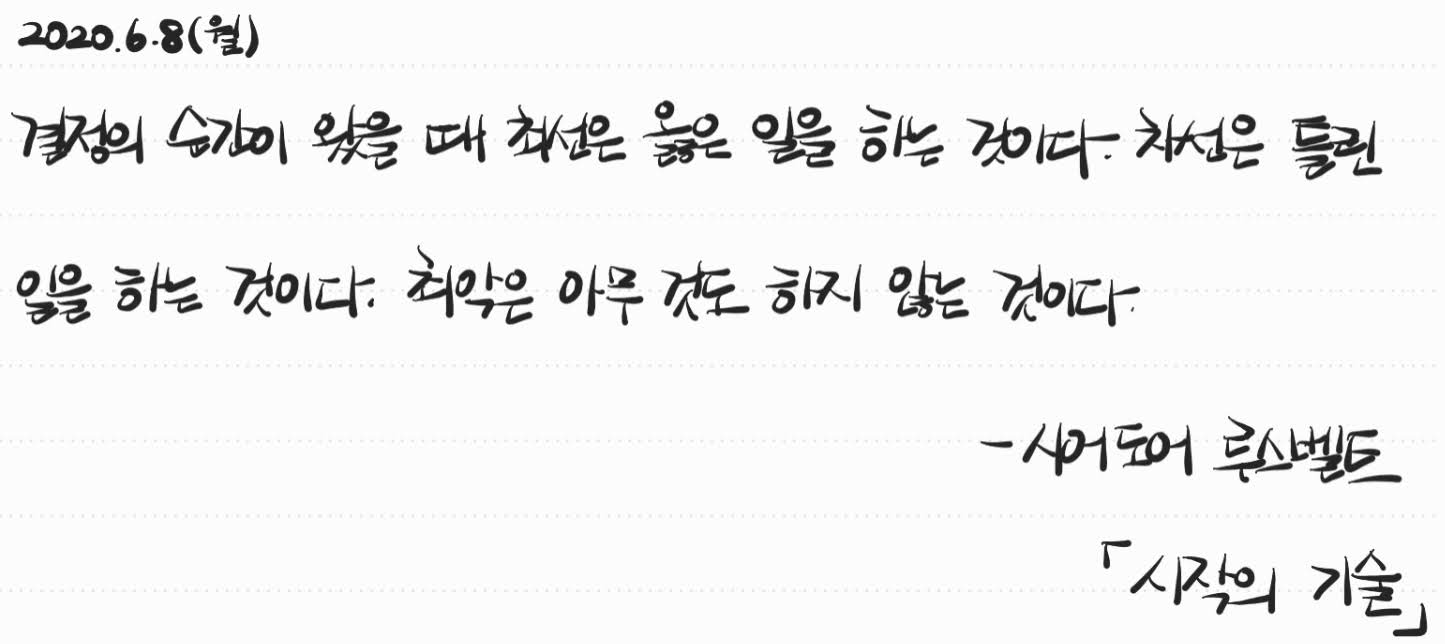 2020.6.8(월)
결정의 순간이 왔을 때 최선은 옳은 일을 하는 것이다. 차선은 틀린
일을 하는 것이다. 최악은 아무 것도 하지 않는 것이다.
- 시어도어 루스벨트
「시작의 기술」